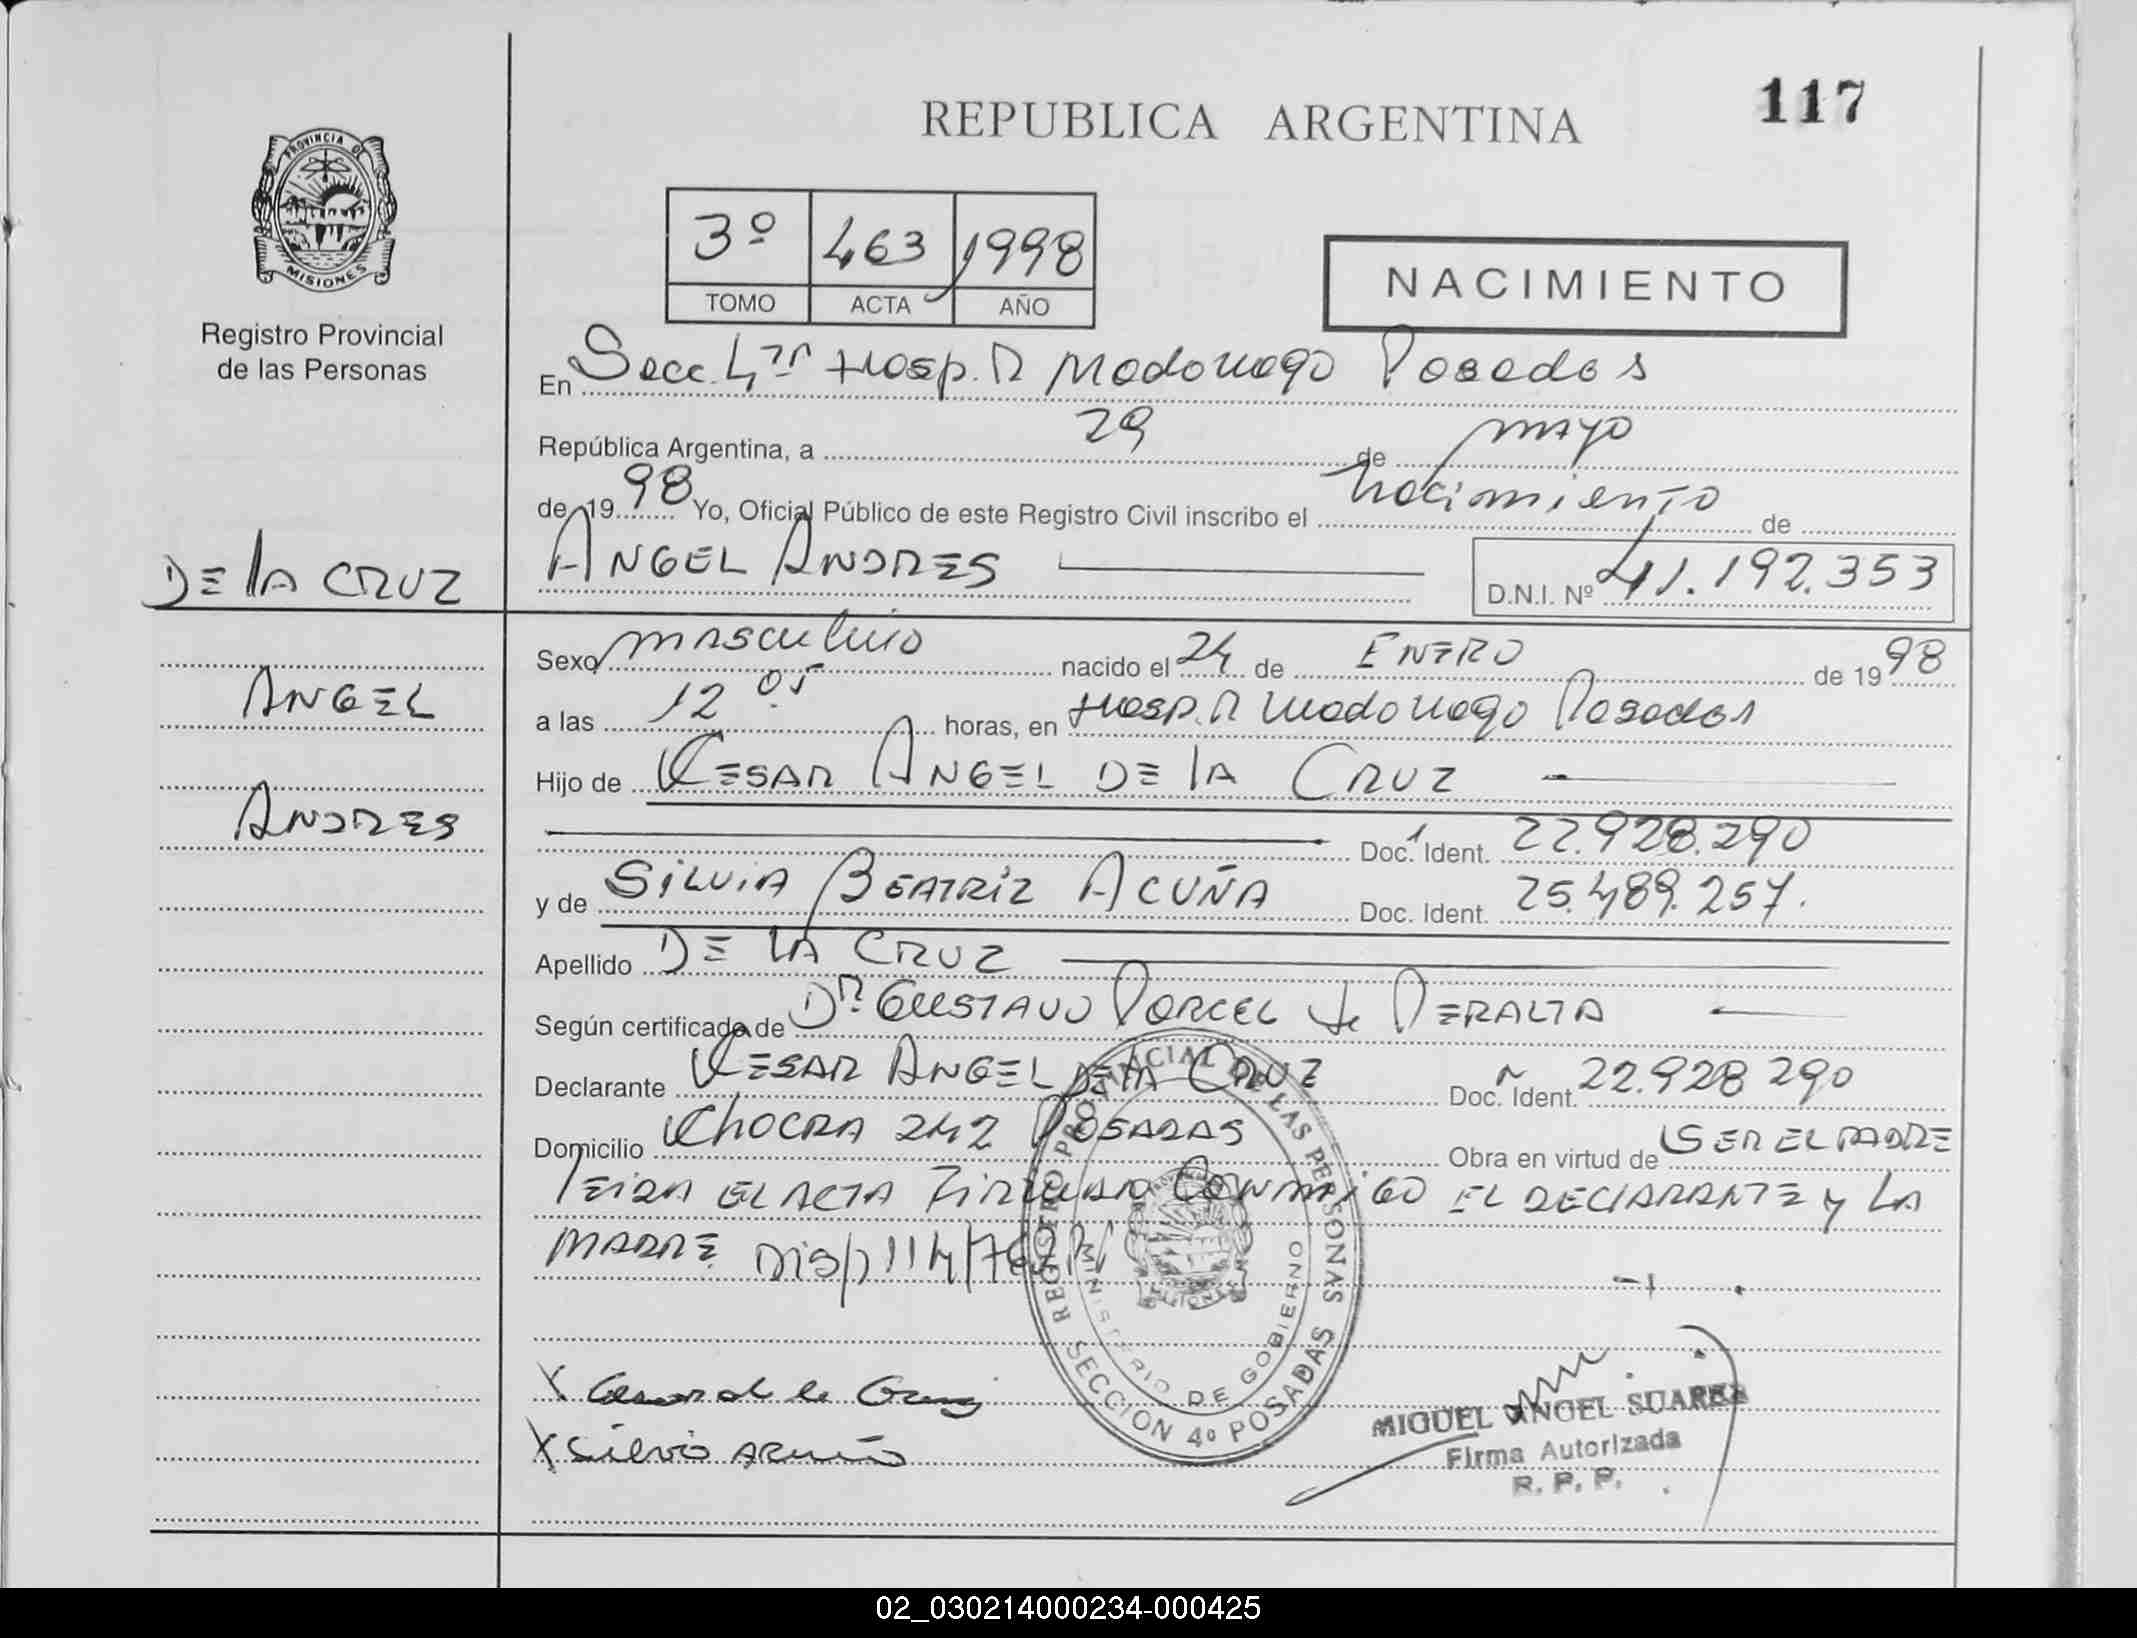 117
REPUBLICA ARGENTINA
PROVINCIA DE
MISIONES
Registro Provincial
de las Personas
3º 463 1998
TOMO ACTA AÑO
NACIMIENTO
En Secc. 4ta Hosp. R Madariaga Posadas
República Argentina, a 29 de mayo
de 1998 Yo, Oficial Público de este Registro Civil inscribo el nacimiento de
DE lA CRUZ
ANGEL ANDRES
D.N.I. Nº 41.192.353
Sexo masculino nacido el 24 de ENERO de 1998
ANGEL
a las 12 05 horas, en Hosp. R Madariaga Posadas
Hijo de CESAR ANGEL DE lA CRUZ
ANDRES
Doc. Ident. 22.928.290
y de SILVIA BEATRIZ ACUÑA Doc. Ident. 25.489.257.
Apellido DE LA CRUZ
Según certificado de Dr. GUSTAVO PORCEL de PERALTA
Declarante CESAR ANGEL DE lA CRUZ Doc. Ident. 22.928 290
Domicilio ChACRA 242 POSADAS Obra en virtud de SER EL PADRE
lEIDA EL ACTA FIRMAN CONMIGO EL DEClARANTE y LA
MADRE Disp 114/76
REGISTRO PROVINCIAL DE LAS PERSONAS
MINISTERIO DE GOBIERNO
SECCION 4º POSADAS
X Cesar de la Cruz
X Silvia Acuña
MIGUEL ANGEL SUAREZ
Firma Autorizada
R. P. P.
02_030214000234-000425